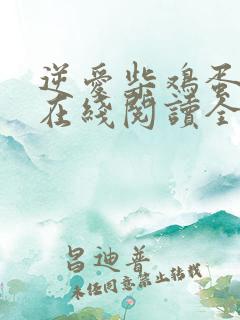 逆愛柴鸡蛋
在綫閱讀全
昌迪普
未经同意禁止转载